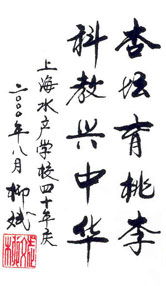 杏坛育桃李
科教兴中华
上海水产学校四十年庆
二〇〇〇年八月 柳斌